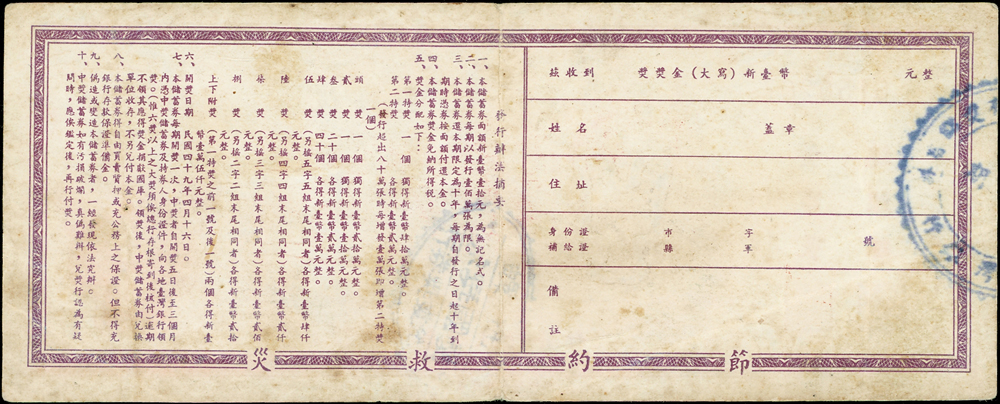 發行辦法摘要
一、本儲蓄券面額新臺幣壹十元，為無記名式。
二、本儲蓄券每期以發行壹佰萬張為限。
三、本儲蓄券還本期限定為十年，每期自發行之日起十年到
期時憑券按面額付還本金。
四、本儲蓄券獎金免納所得稅。
五、獎金分配如下：
第一特獎 一個 獨得新臺幣肆拾萬元整。
第二特獎 各得新臺幣貳萬元整。
(發行起出八十萬張時每增發壹萬張即增第二特獎
一個)
頭獎 一個 獨得新臺幣貳拾萬元整。
貳獎 一個 獨得新臺幣壹拾萬元整。
叁獎 二十個 各得新臺幣貳萬元整。
肆獎 四十個 各得新臺幣壹萬元整。
伍獎 (另搖五字五組末尾相同者)各得新臺幣肆仟
元整。
陸獎 (另搖四字四組末尾相同者)各得新臺幣貳仟
元整。
柒獎 (另搖三字三組末尾相同者)各得新臺幣貳佰
元整。
捌獎 (另搖二字二組末尾相同者)各得新臺幣貳拾
元整。
上下附獎 (第一特獎之前一號及後一號)兩個各得新臺
幣壹萬伍仟元整。
六、開獎日期 民國四十九年四月十六日。
七、本儲蓄券每期開獎一次，中獎者自開獎五日後至三個月
內憑中獎儲蓄券及持券人身份證件，向各地臺灣銀行領
獎。(惟六獎以上之大獎須俟總行存根寄到後核付)逾期
不領其應得獎金捐獻國庫。領獎後，中獎儲蓄券由兌獎
單位收存，不另兌付本金。
八、本儲蓄券得自由買賣質押或充公務上之保證。但不得充
銀行存款保證準備金。
九、偽造或變造本儲蓄券者，一經發現依法究辦。
十、中獎儲蓄券如有污損破爛，真偽難辨，兌獎行認為有疑
問時，應俟鑑定後，再行付獎。
茲收到 獎獎金(大寫)新臺幣 元整
姓名 蓋章
住址
身份證 市 字
補給證 縣 軍 號
備註
節約救災